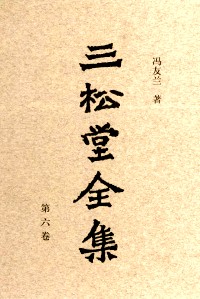 冯友兰 著
三松堂全集
第六卷